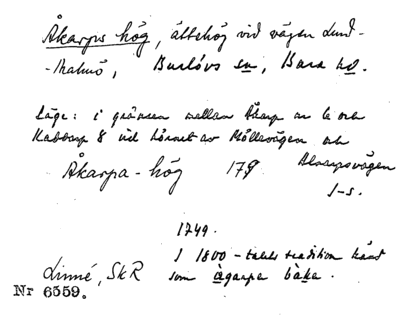 Åkarps hög, ättehög vid vägen Lund-
-Malmö, Burlövs sn, Bara hd.
Läge: i gränsen mellan Åkarp nr 6 och
Kabbarp 8 vid hörnet av Möllevägen och
Åkarpa-hög 179 Alnarpsvägen
J-s.
1749.
I 1800-talets tradition känd
Linné, SkR som àgarpa bàka.
Nr 6559.